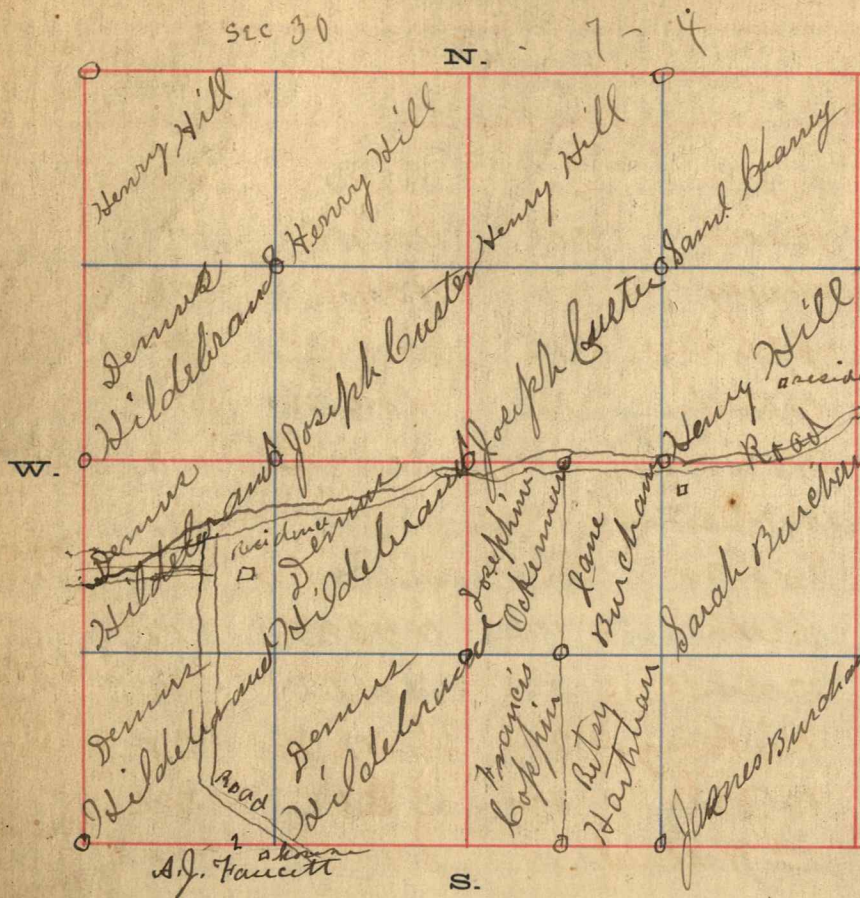 Sec 30
7 - 4
N.
Henry Hill
Henry Hill
Henry Hill
Saml.
Demus
Hildebrand
Joseph Custer
Joseph Custer
Henry Hill
reside
W.
Road
Demus
Hildebrand
residence
Demus
Hildebrand
Josephine
Ockerman
Jane
Burcham
Sarah Burcham
Demus
Hildebrand
Demus
Hildebrand
Francis
Coppin
Betsy
James Burcha
Road
1
house
A.J. Faucett
S.